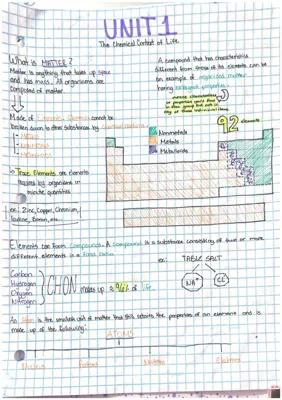 UNIT 1
The Chemical Context of Life
What is MATTER?
Matter is anything that takes up space
and has mass. All organisms are
composed of matter.
A compound that has characteristics
different from those of its elements can be
an example of organized matter
having emergent properties
Made of Elements. Elements cannot be
broken down to other substances by chemical reactions
Metals
Nonmetals
Metalloids
92 elements
Nonmetals
Metals
Metalloids
Trace Elements are elements
required by organisms in
minute quantities
ex: Zinc, Copper, Chromium,
Iodine, Boron, etc.
Elements can form Compounds. A compound is a substance consisting of two or more
different elements in a fixed ratio
ex: TABLE SALT
Na+
Cl-
Carbon
Hydrogen
Oxygen
Nitrogen
CHON makes up ≈ 96% of life
An Atom is the smallest unit of matter that still retains the properties of an element and is
made up of the following:
ATOMS
Nucleus Protons Neutrons Electrons